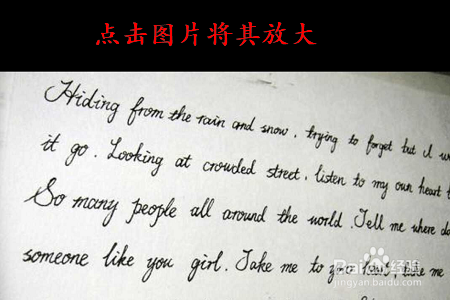 点击图片将其放大
Hiding from the rain and snow, trying to forget but I w
it go. Looking at crowded street, listen to my own heart
So many people all around the world. Tell me where do
someone like you girl. Take me to your heart, take me
Baidu经验
jingyan.baidu.com